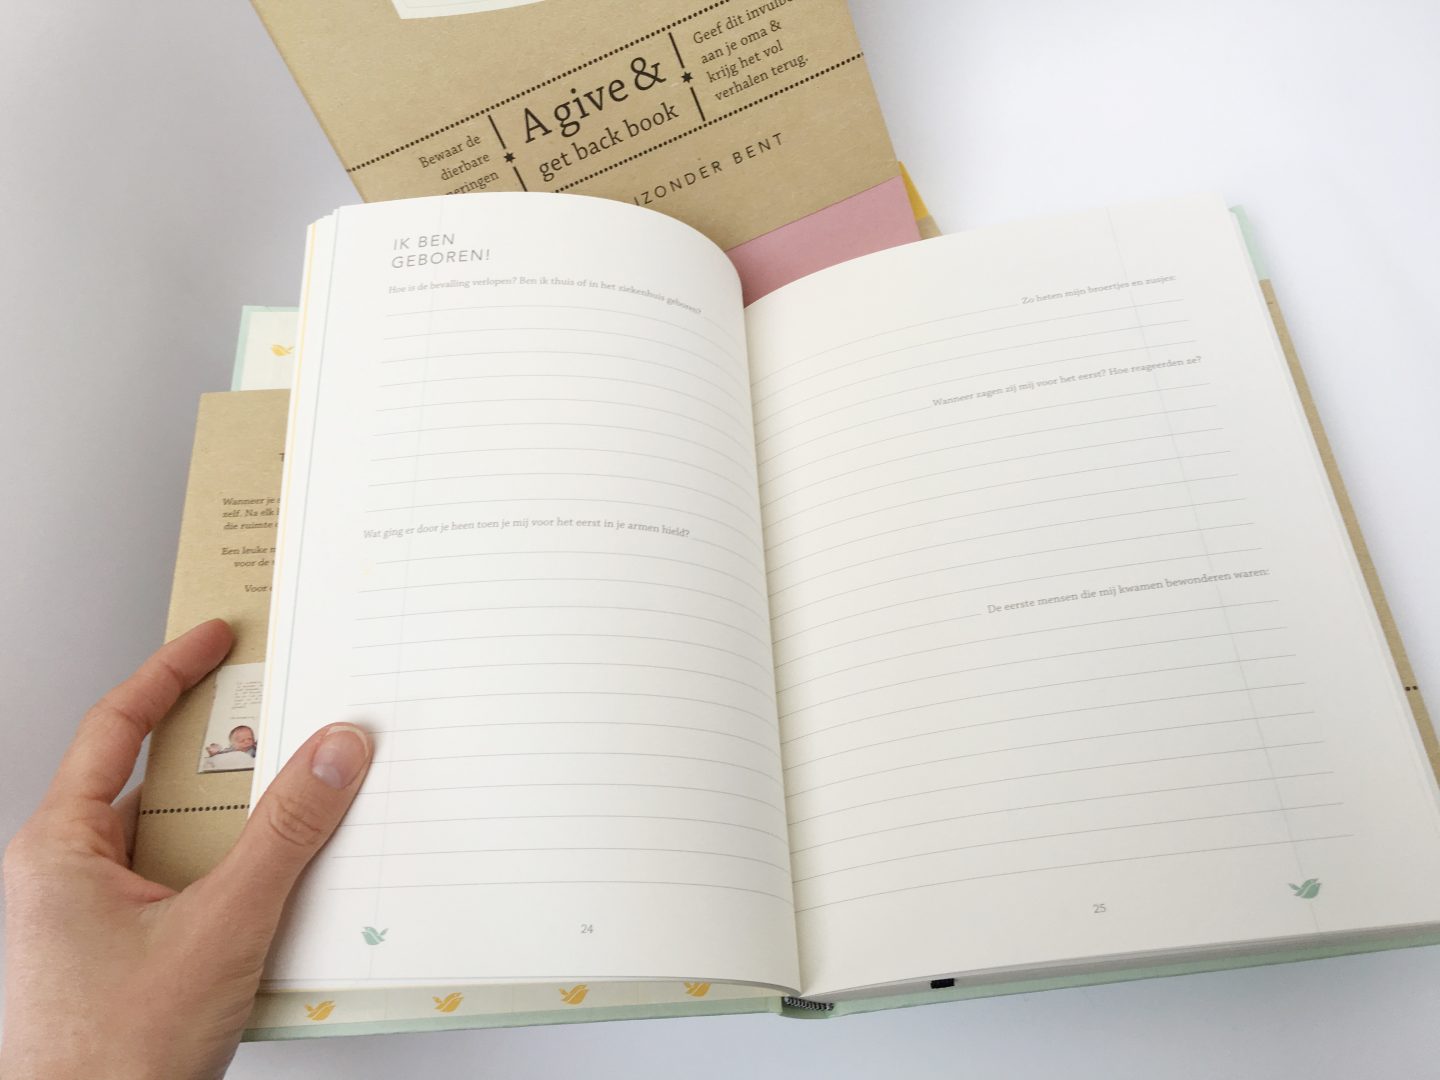 Bewaar de
dierbare
A give &
get back book
Geef dit
aan je oma &
krijg het vol
verhalen terug.
BENT
IK BEN
GEBOREN!
Hoe is de bevalling verlopen? Ben ik thuis of in het ziekenhuis geboren?
Wat ging er door je heen toen je mij voor het eerst in je armen hield?
24
Zo heten mijn broertjes en zusjes:
Wanneer zagen zij mij voor het eerst? Hoe reageerden ze?
De eerste mensen die mij kwamen bewonderen waren:
25
Wanneer je
zelf. Na elk
die ruimte
Een leuke
voor de
Voor